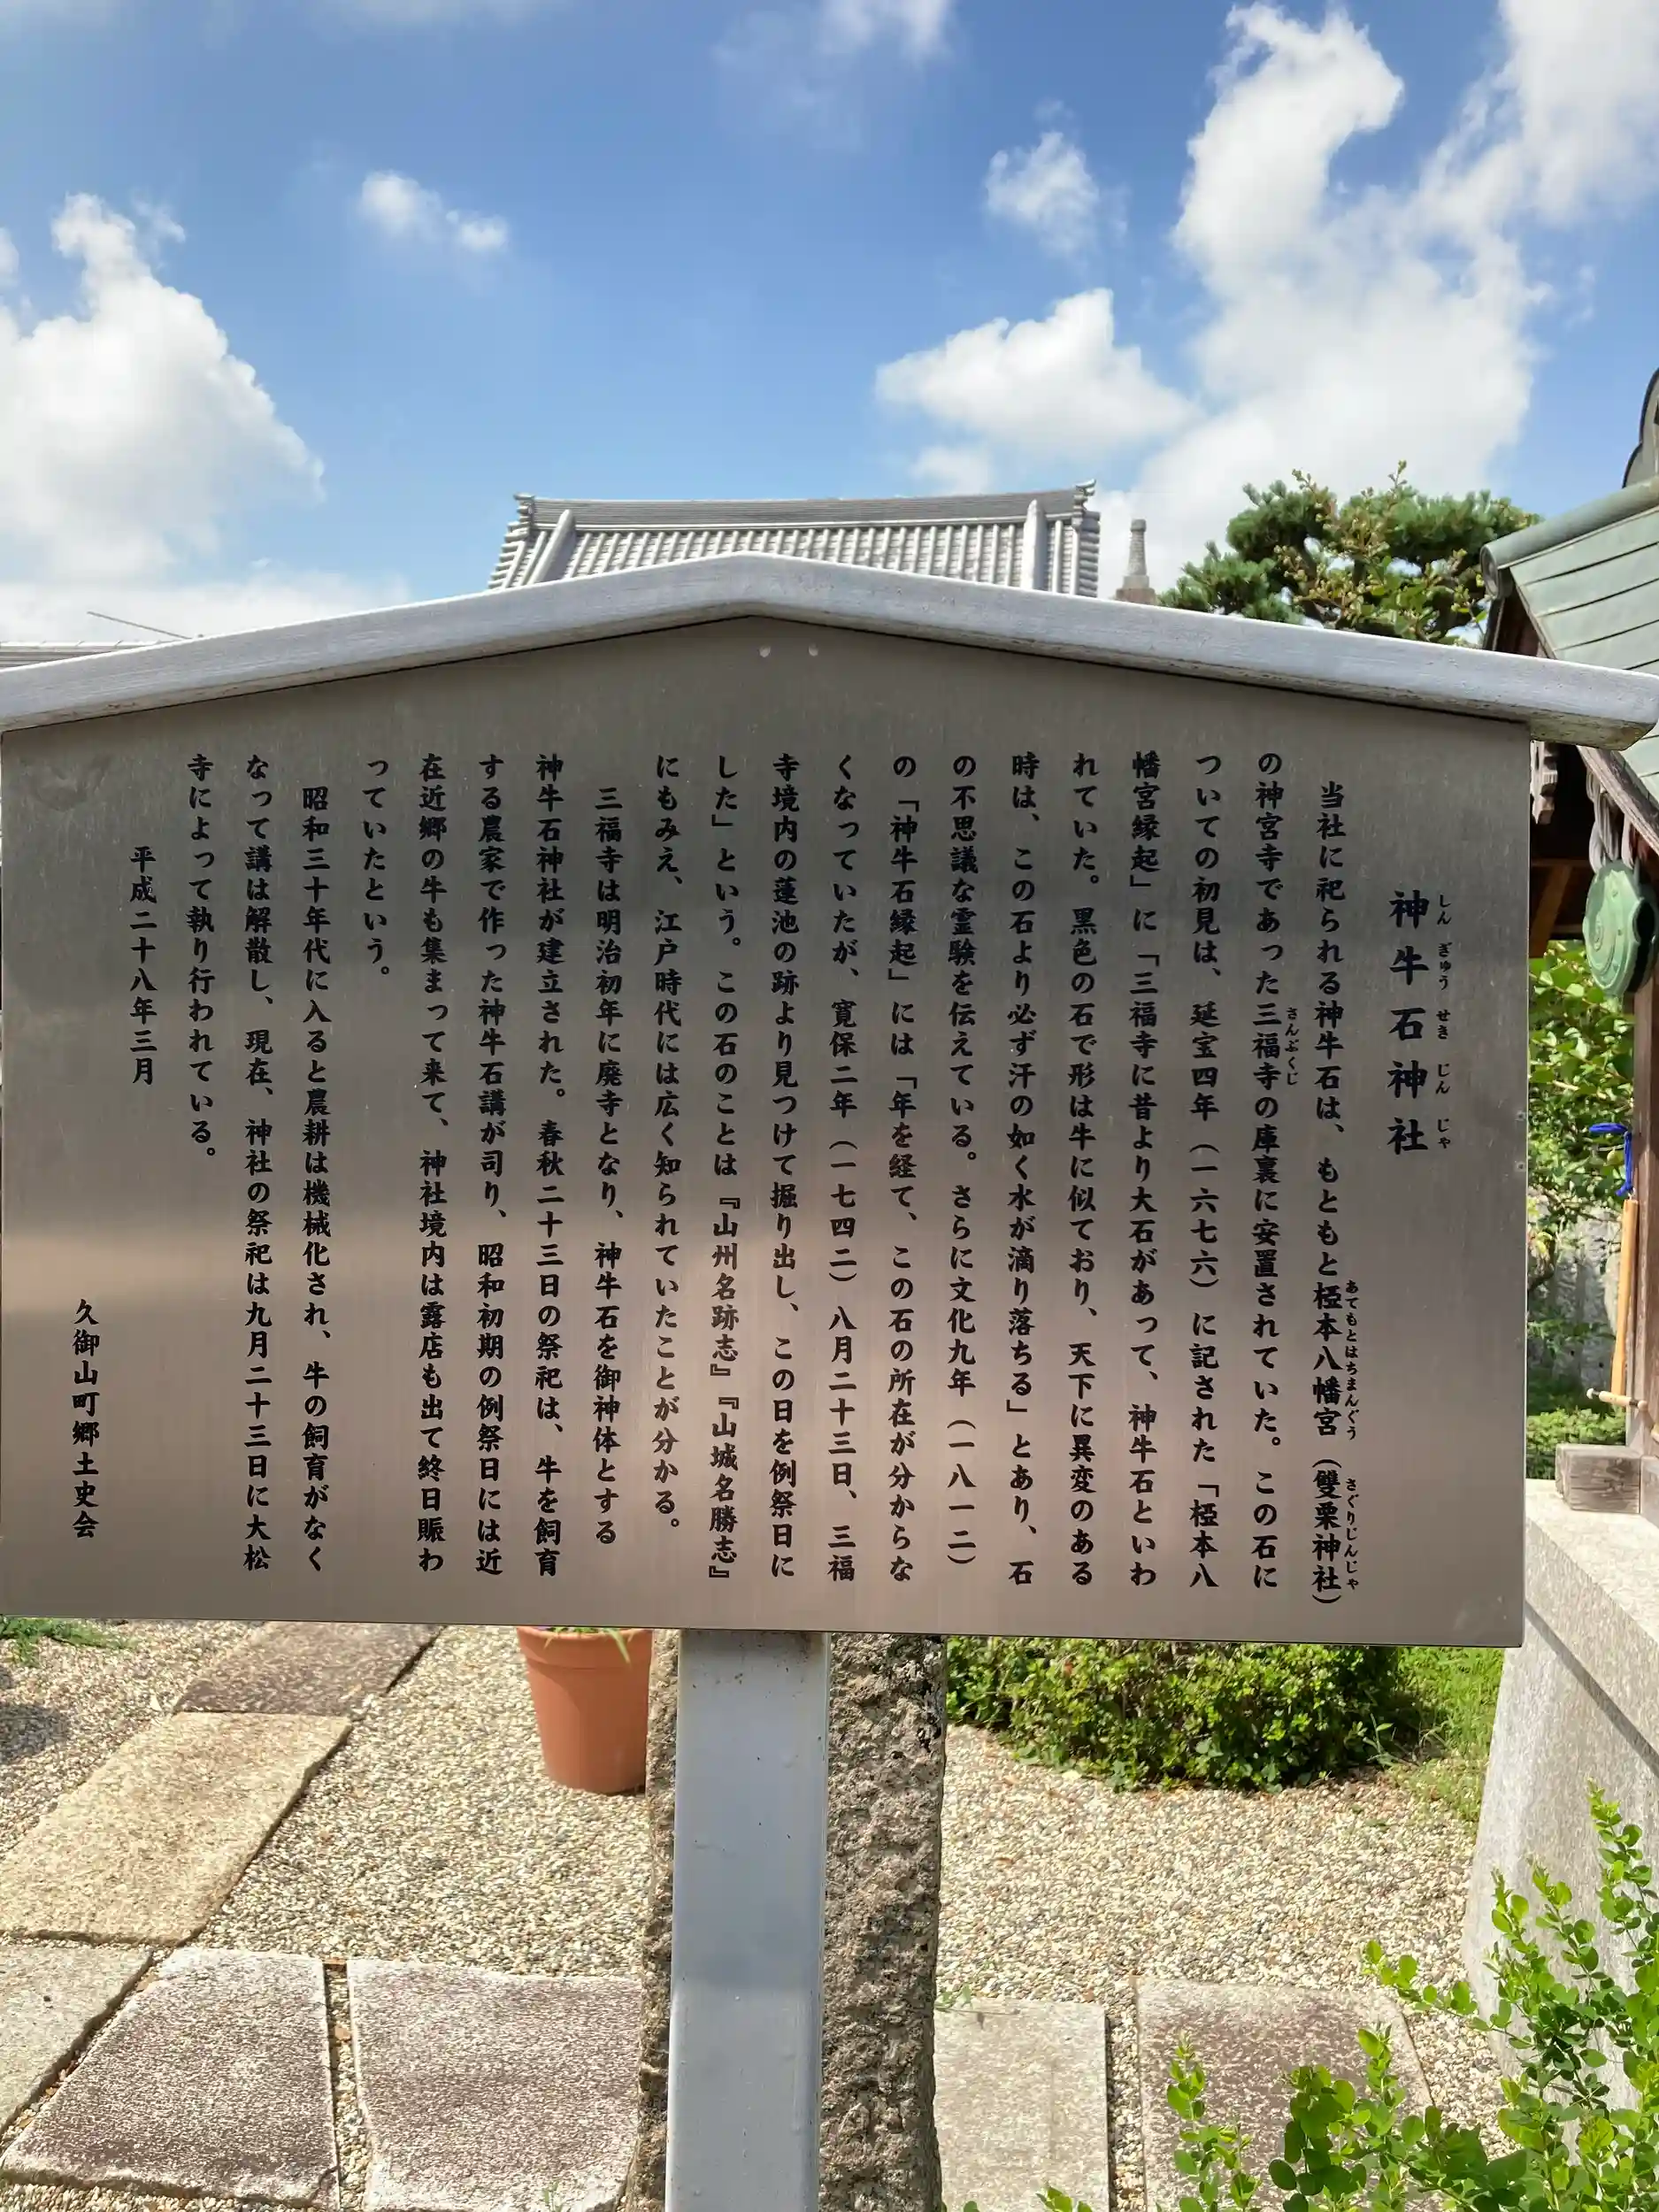 神牛石神社
しんぎゅうせきじんじゃ
当社に祀られる神牛石は、もともと椏本八幡宮（雙栗神社）
あてもとはちまんぐう さぐりじんじゃ
の神宮寺であった三福寺の庫裏に安置されていた。この石に
さんぷくじ
ついての初見は、延宝四年（一六七六）に記された「椏本八
幡宮縁起」に「三福寺に昔より大石があって、神牛石といわ
れていた。黒色の石で形は牛に似ており、天下に異変のある
時は、この石より必ず汗の如く水が滴り落ちる」とあり、石
の不思議な霊験を伝えている。さらに文化九年（一八一二）
の「神牛石縁起」には「年を経て、この石の所在が分からな
くなっていたが、寛保二年（一七四二）八月二十三日、三福
寺境内の蓮池の跡より見つけて掘り出し、この日を例祭日に
した」という。この石のことは『山州名跡志』『山城名勝志』
にもみえ、江戸時代には広く知られていたことが分かる。
三福寺は明治初年に廃寺となり、神牛石を御神体とする
神牛石神社が建立された。春秋二十三日の祭祀は、牛を飼育
する農家で作った神牛石講が司り、昭和初期の例祭日には近
在近郷の牛も集まって来て、神社境内は露店も出て終日賑わ
っていたという。
昭和三十年代に入ると農耕は機械化され、牛の飼育がなく
なって講は解散し、現在、神社の祭祀は九月二十三日に大松
寺によって執り行われている。
平成二十八年三月
久御山町郷土史会